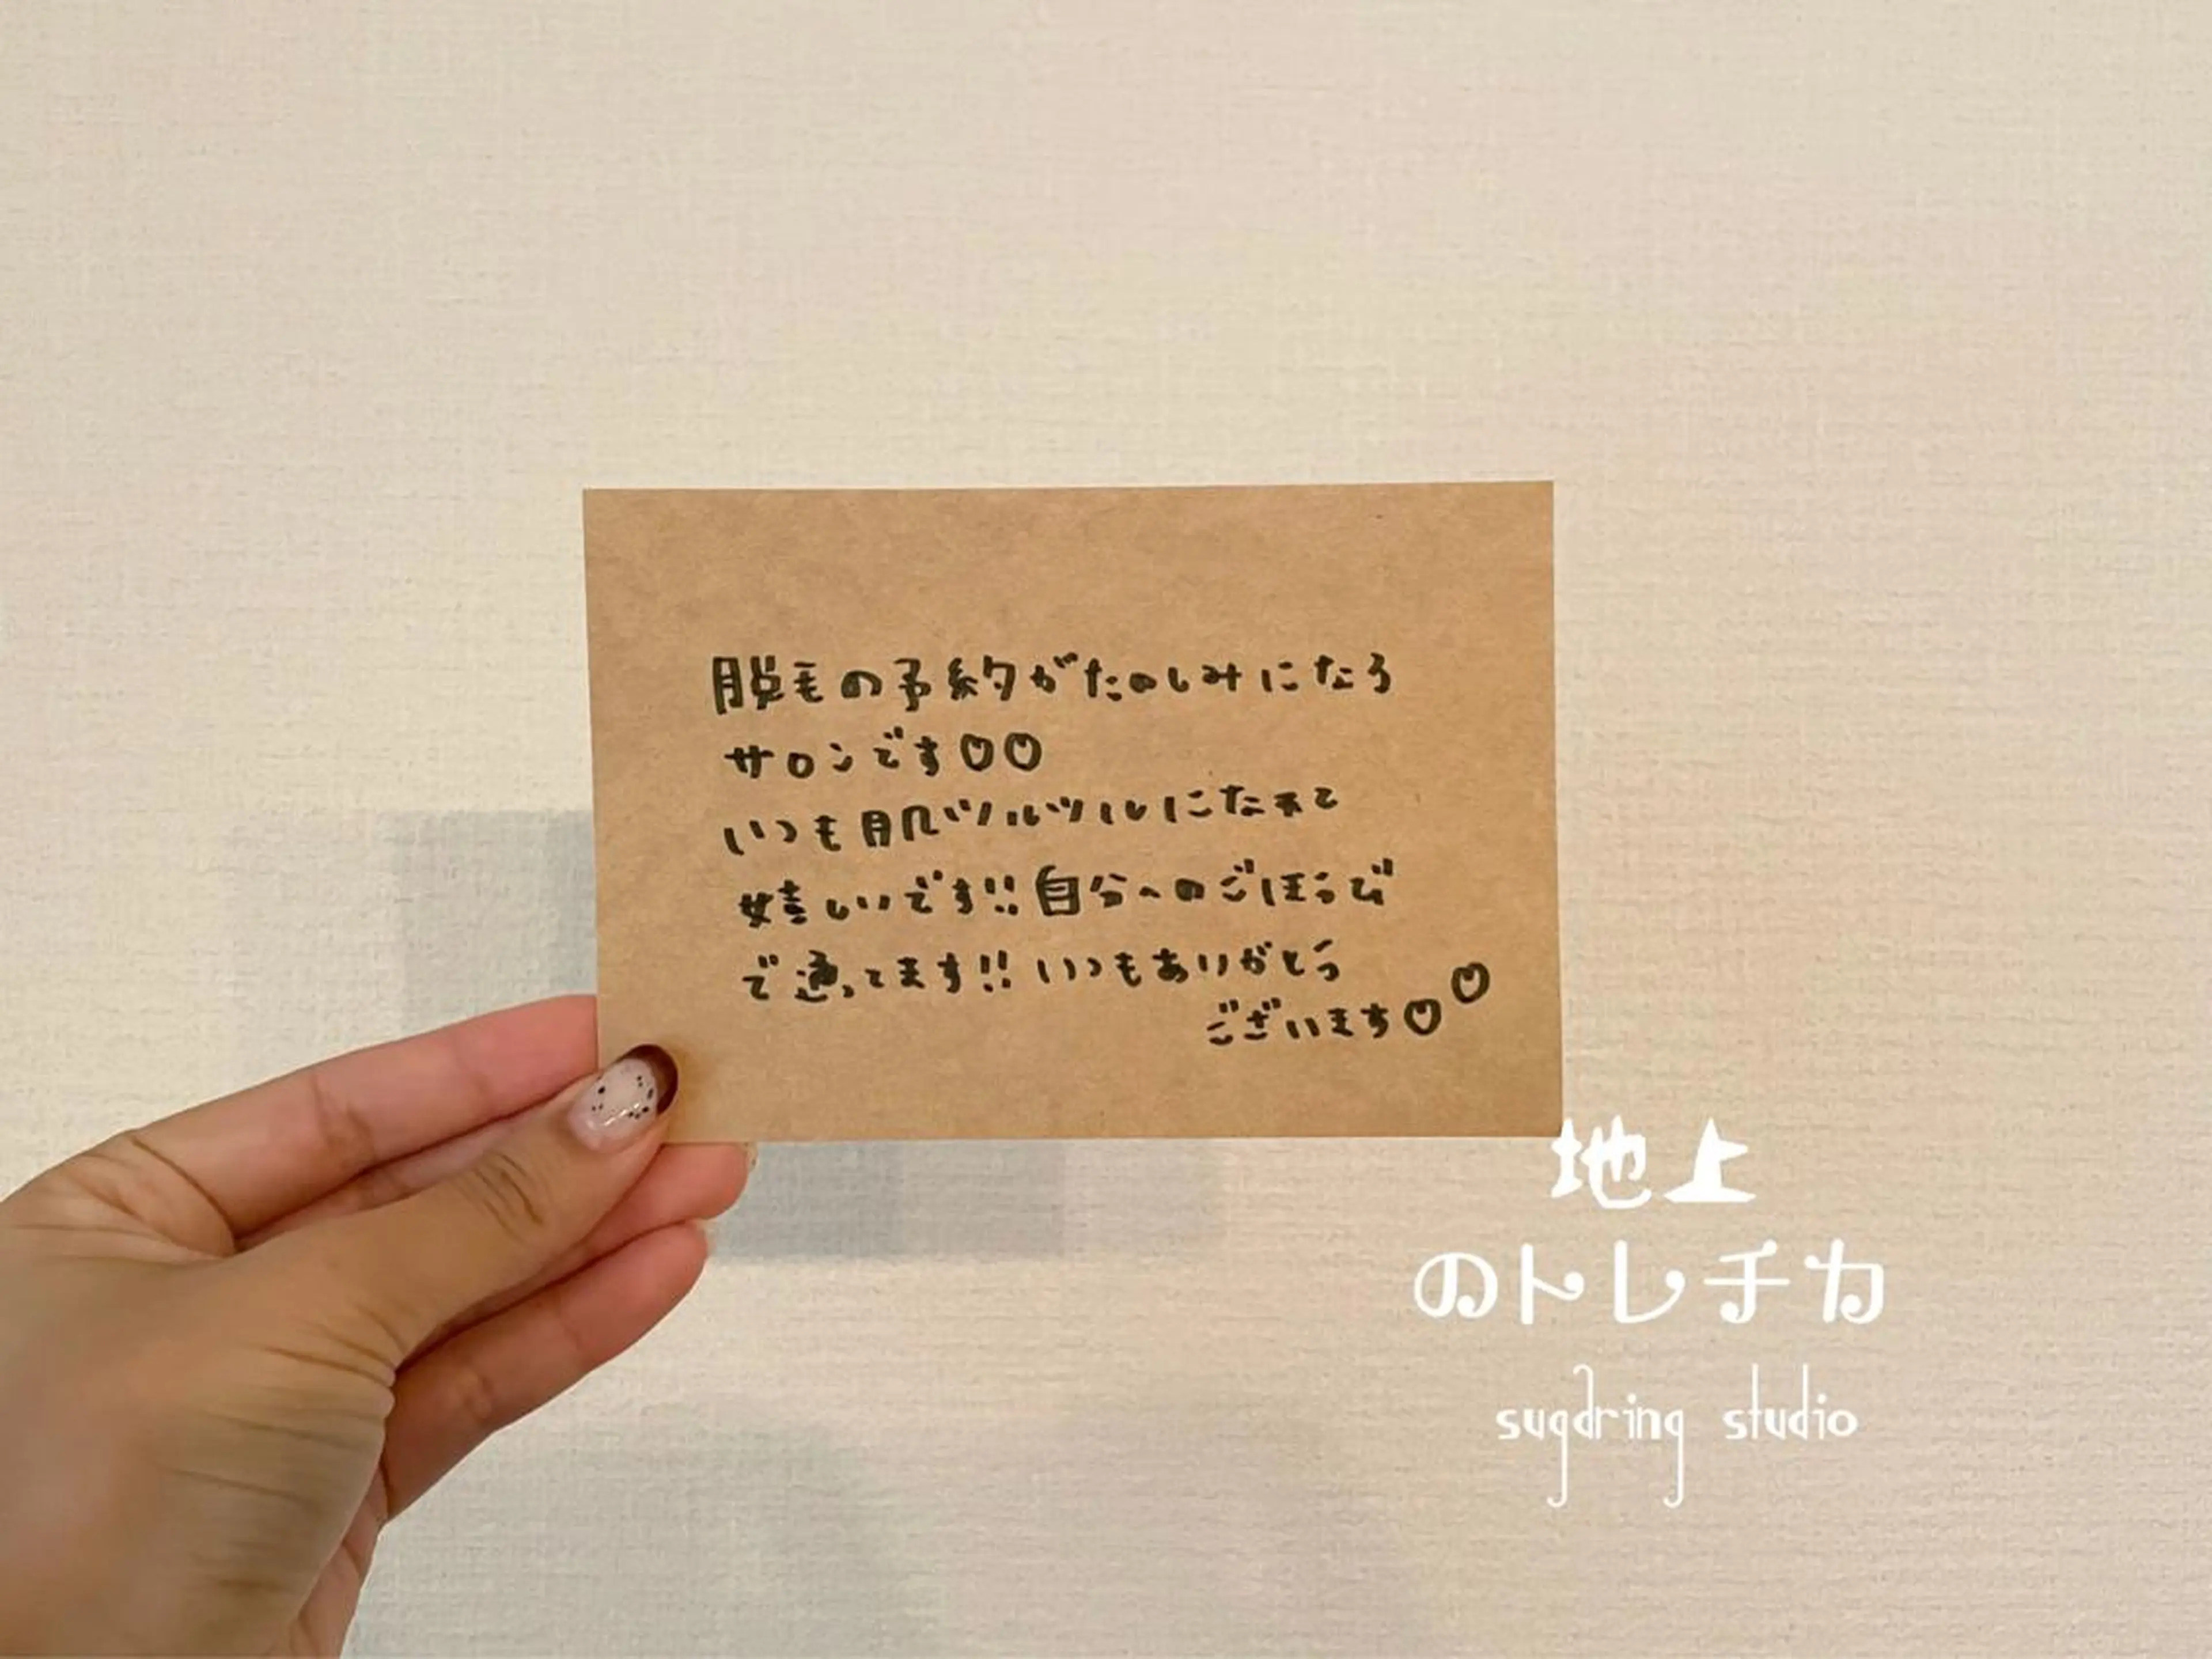 脱毛の予約がたのしみになる
サロンです♡♡
いつも肌ツルツルになれて
嬉しいです!!自分へのごほうび
で通ってます!!いつもありがとう
ございます♡♡
地上
のトレチカ
sugdring studio